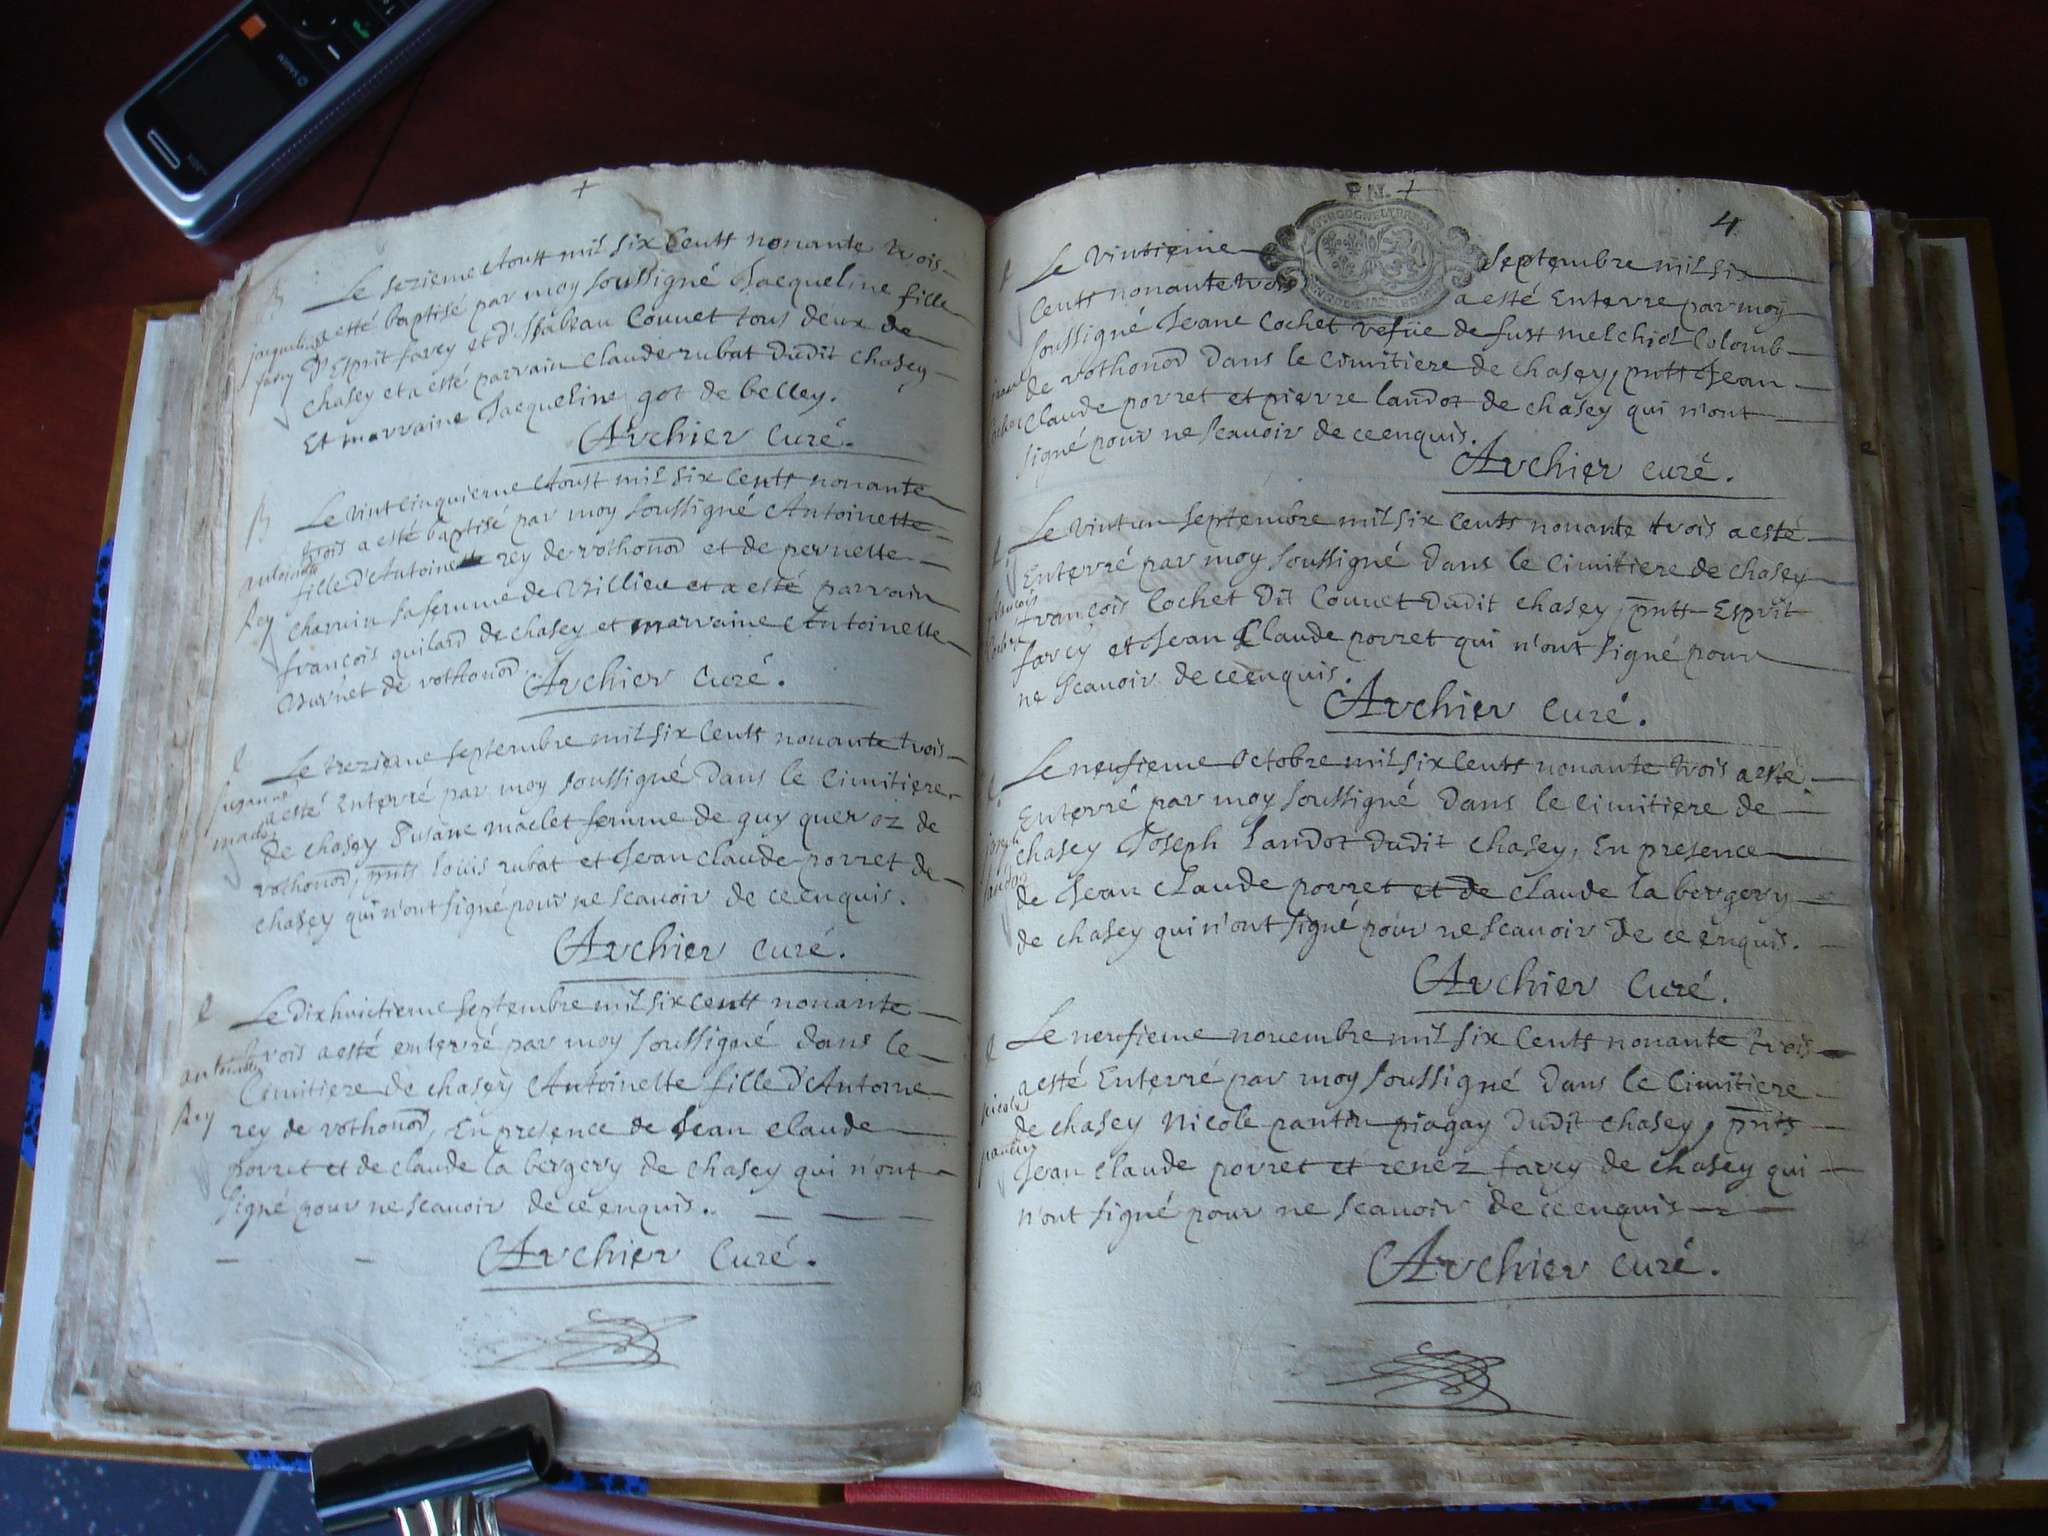 Le sezieme Aoust mil six Cents nonante trois
a esté baptisé par moy soussigné Jacqueline fille
D'Esprit farcy et d'Isabeau Connet tous deux de
chasey et a esté parrain Claude rubat dudit chasey
Et marraine Jacqueline got de belley.
Archier Curé.
Le vint Cinquieme Aoust mil six Cents nonante
trois a esté baptisé par moy soussigné Antoinette
fille d'Antoine rey de vothonod et de pernette
charvin sa femme de Villieu et a esté parrain
françois quilard de chasey et marraine Antoinette
de vothonod.
Archier Curé.
Le trezieme septembre mil six Cents nonante trois
a esté Enterré par moy soussigné Dans le Cimitiere
de chasey Susane maclet femme de guy queroz de
vothonod, pnts louis rubat et Jean claude porret de
chasey qui n'ont signé pour ne scavoir de ce enquis.
Archier Curé.
Le dixhuictieme septembre mil six Cents nonante
trois a esté enterré par moy soussigné dans le
Cimitiere de chasey Antoinette fille d'Antoine
rey de vothonod, En presence de Jean claude
porret et de claude la bergery de chasey qui n'ont
signé pour ne scavoir de ce enquis.
Archier Curé.
4
Le vintieme septembre mil six
Cents nonante trois a esté Enterré par moy
soussigné Jeane Cochet vefue de fust melchiol Colomb
de vothonod Dans le Cimitiere de chasey, pntts Jean
Claude porret et pierre landoz de chasey qui n'ont
signé pour ne scavoir de ce enquis.
Archier Curé.
Le vint un septembre mil six Cents nonante trois a esté
Enterré par moy soussigné Dans le Cimitiere de chasey
françois Cochet Dit Connet dudit chasey, pntts Esprit
farcy et Jean Claude porret qui n'ont signé pour
ne scavoir de ce enquis.
Archier Curé.
Le neufieme Octobre mil six Cents nonante trois a esté
Enterré par moy soussigné Dans le Cimitiere de
chasey Joseph Landoz dudit chasey, En presence
de Jean claude porret et de claude la bergery
de chasey qui n'ont signé pour ne scavoir de ce enquis.
Archier Curé.
Le neufieme novembre mil six Cents nonante trois
a esté Enterré par moy soussigné Dans le Cimitiere
de chasey Nicole pantin piagay dudit chasey, pnts
Jean Claude porret et renez farcy de chasey qui
n'ont signé pour ne scavoir de ce enquis
Archier Curé.